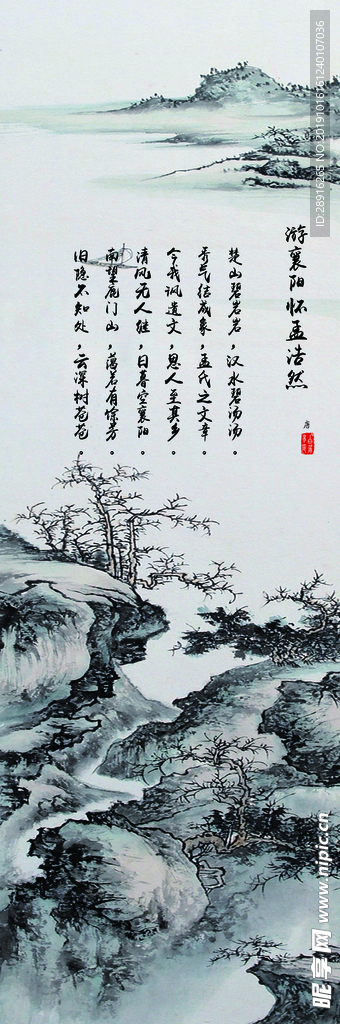 游襄阳怀孟浩然
唐
楚山碧岩岩，汉水碧汤汤。
秀气结成象，孟氏之文章。
今我讽遗文，思人至其乡。
清风无人继，日暮空襄阳。
南望鹿门山，蔼若有馀芳。
旧隐不知处，云深树苍苍。
ID:28916265 NO:20191016161240107036
昵享网 www.nipic.cn